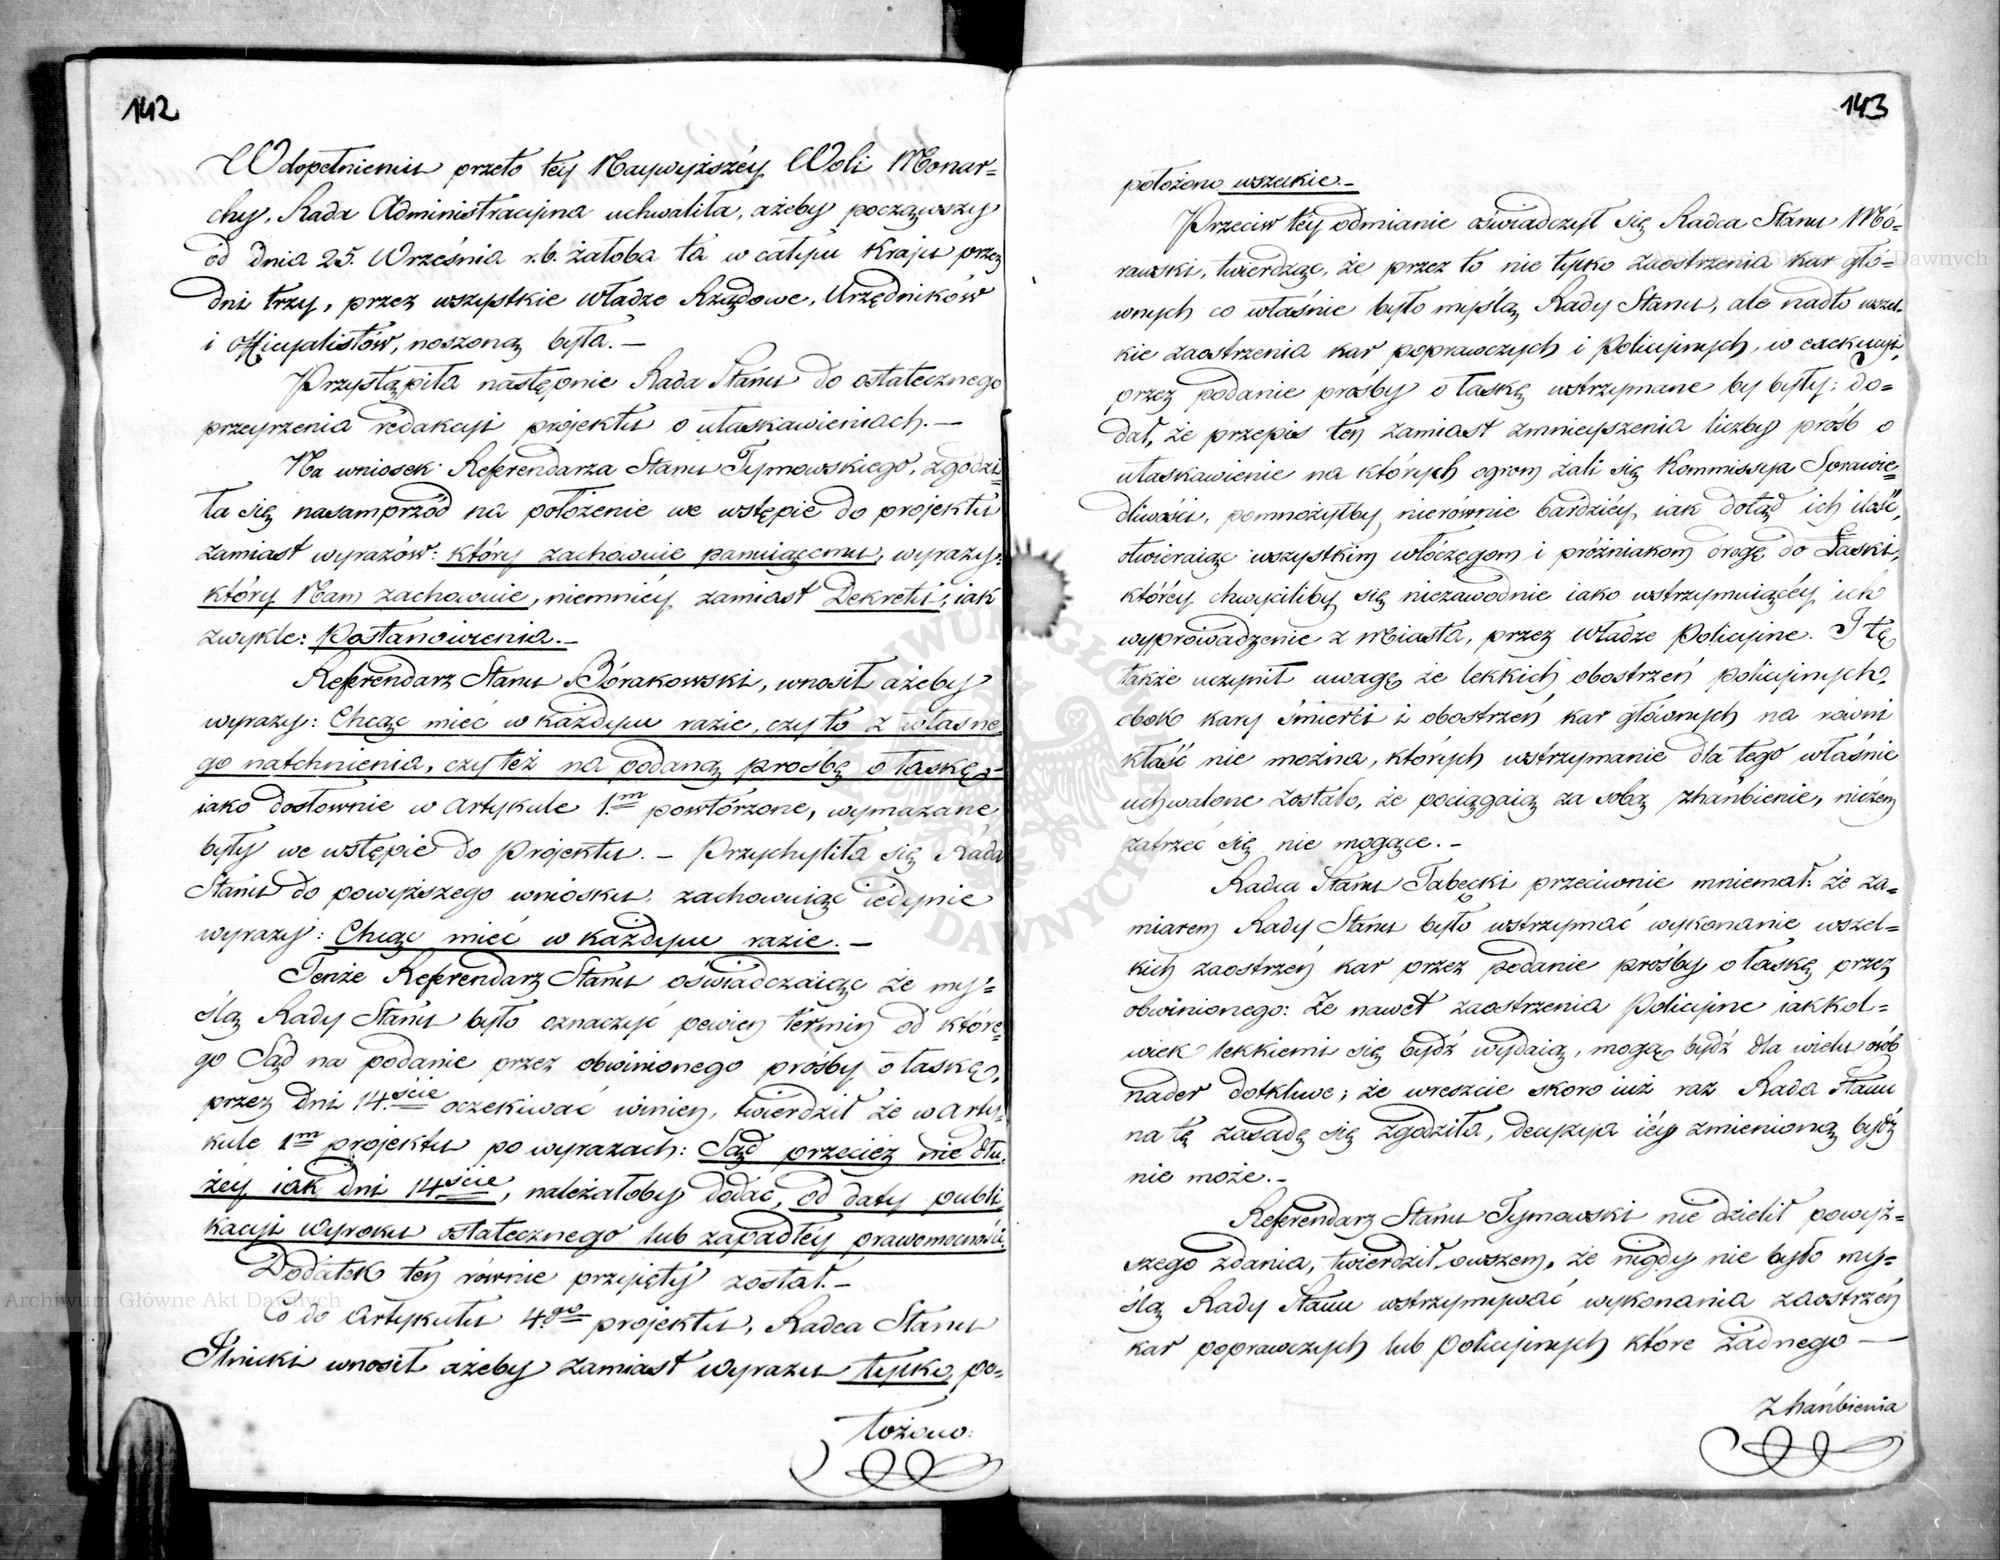 142
W dopełnieniu przeto tey Naywyższéy Woli Monar=
chy, Rada Administracyina uchwaliła, ażeby począwszy
od dnia 25. Września r.b. żałoba ta w całym Kraju przez
dni trzy, przez wszystkie władze Rządowe, Urzędników
i Officyalistów, noszoną była. —
Przystąpiła następnie Rada Stanu do ostatecznego
przeyrzenia redakcyi projektu o ułaskawieniach. —
Na wniosek Referendarza Stanu Tymowskiego, zgodzi=
ła się nasamprzód na położenie we wstępie do projektu
zamiast wyrazów: który zachowuie panuiącemu, wyrazy:
który Nam zachowuie, niemniéy zamiast Dekretu, iak
zwykle: Postanowienia. —
Referendarz Stanu Bórakowski, wnosił ażeby
wyrazy: Chcąc mieć w każdym razie, czy to z własne=
go natchnienia, czy też na podaną prośbę o łaskę, —
iako dosłownie w artykule 1.m powtórzone, wymazane
były we wstępie do projektu. — Przychyliła się Rada
Stanu do powyższego wniosku, zachowuiąc iedynie
wyrazy: Chcąc mieć w każdym razie. —
Tenże Referendarz Stanu oświadczaiąc że my=
ślą Rady Stanu było oznaczyć pewien termin od które=
go Sąd na podanie przez obwinionego prośby o łaskę,
przez dni 14.ście oczekiwać winien, twierdził że w arty=
kule 1m projektu po wyrazach: Sąd przecież nie dłu=
żéy iak dni 14ście, należałoby dodać, od daty publi=
kacyi wyroku ostatecznego lub zapadłéy prawomocności.
Dodatek ten równie przyięty został. —
Co do artykułu 4.go projektu, Radca Stanu
Ilnicki wnosił ażeby zamiast wyrazu tylko, po=
łożono:
143
położono wszelkie. —
Przeciw téy odmianie oświadczył się Radca Stanu Mo=
rawski, twierdząc, że przez to nie tylko zaostrzenia kar głó=
wnych co właśnie było myślą Rady Stanu, ale nadto wszel=
kie zaostrzenia kar poprawczych i policyinych, w exekucyi,
przez podanie prośby o łaskę wstrzymane by były; do=
dał, że przepis ten zamiast zmnieyszenia liczby próśb o
ułaskawienie na których ogrom żali się Kommissya Sprawie=
dliwości, pomnożyłby nierównie bardziéy iak dotąd ich ilość,
otwieraiąc wszystkim włóczęgom i próżniakom drogę do Łaski,
któréy chwyciliby się niezawodnie iako wstrzymuiącéy ich
wyprowadzenie z Miasta, przez Władze Policyine. I tę
także uczynił uwagę że lekkich obostrzeń policyinych,
obok kary śmierci i obostrzeń kar głównych na równi
kłaść nie można, których wstrzymanie dla tego właśnie
uchwalone zostało, że pociągaią za sobą zhańbienie, niczém
zatrzeć się nie mogące. —
Radca Stanu Tabęcki przeciwnie mniemał: że za=
miarem Rady Stanu było wstrzymać wykonanie wszel=
kich zaostrzeń kar przez podanie prośby o łaskę przez
obwinionego: że nawet zaostrzenia Policyine iakkol=
wiek lekkiemi się bydź wydaią, mogą bydź dla wielu osób
nader dotkliwe; że wreszcie skoro iuż raz Rada Stanu
na tę zasadę się zgodziła, decyzya iéy zmienioną bydź
nie może. —
Referendarz Stanu Tymowski nie dzielił powyż=
szego zdania, twierdził owszem, że nigdy nie było my=
ślą Rady Stanu wstrzymywać wykonania zaostrzeń
kar poprawczych lub policyinych które żadnego —
zhańbienia
Archiwum Główne Akt Dawnych